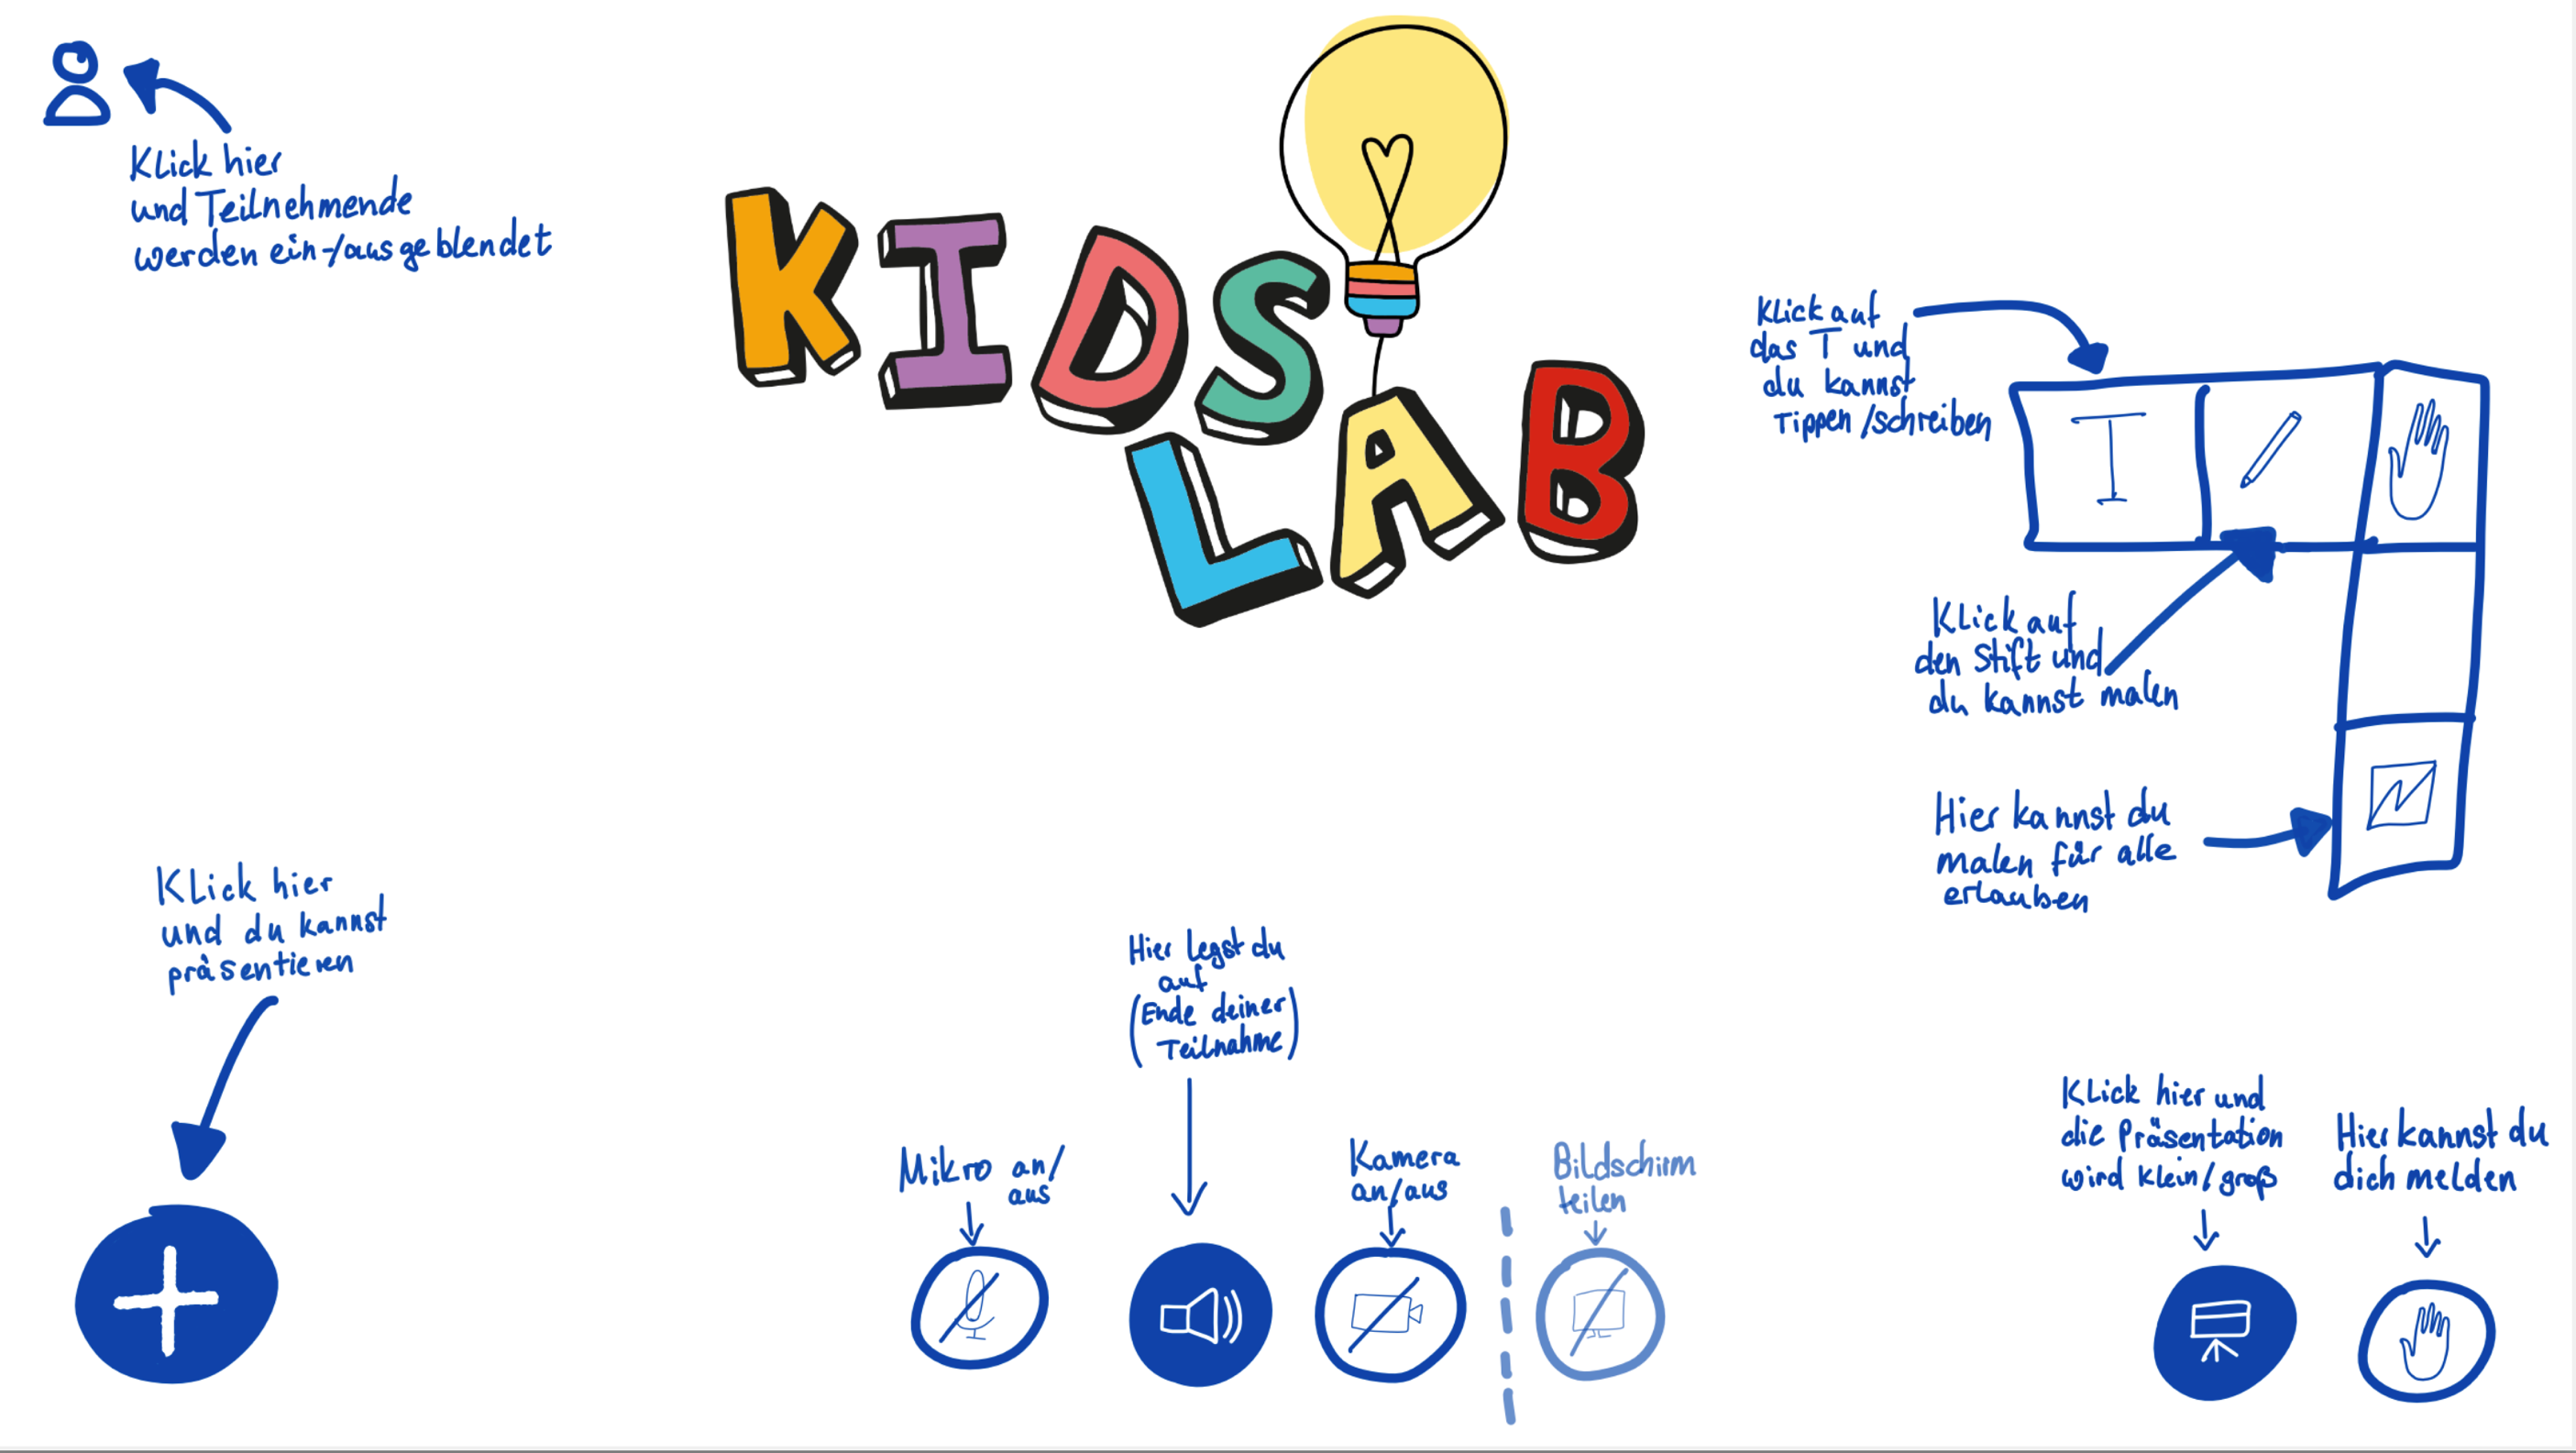 Klick hier
und Teilnehmende
werden ein-/ausgeblendet
KIDS
LAB
Klick auf
das T und
du kannst
Tippen/schreiben
T
Klick auf
den Stift und
du kannst malen
Hier kannst du
malen für alle
erlauben
Klick hier
und du kannst
präsentieren
Hier legst du
auf
(Ende deiner
Teilnahme)
Mikro an/
aus
Kamera
an/aus
Bildschirm
teilen
Klick hier und
die Präsentation
wird klein/groß
Hier kannst du
dich melden